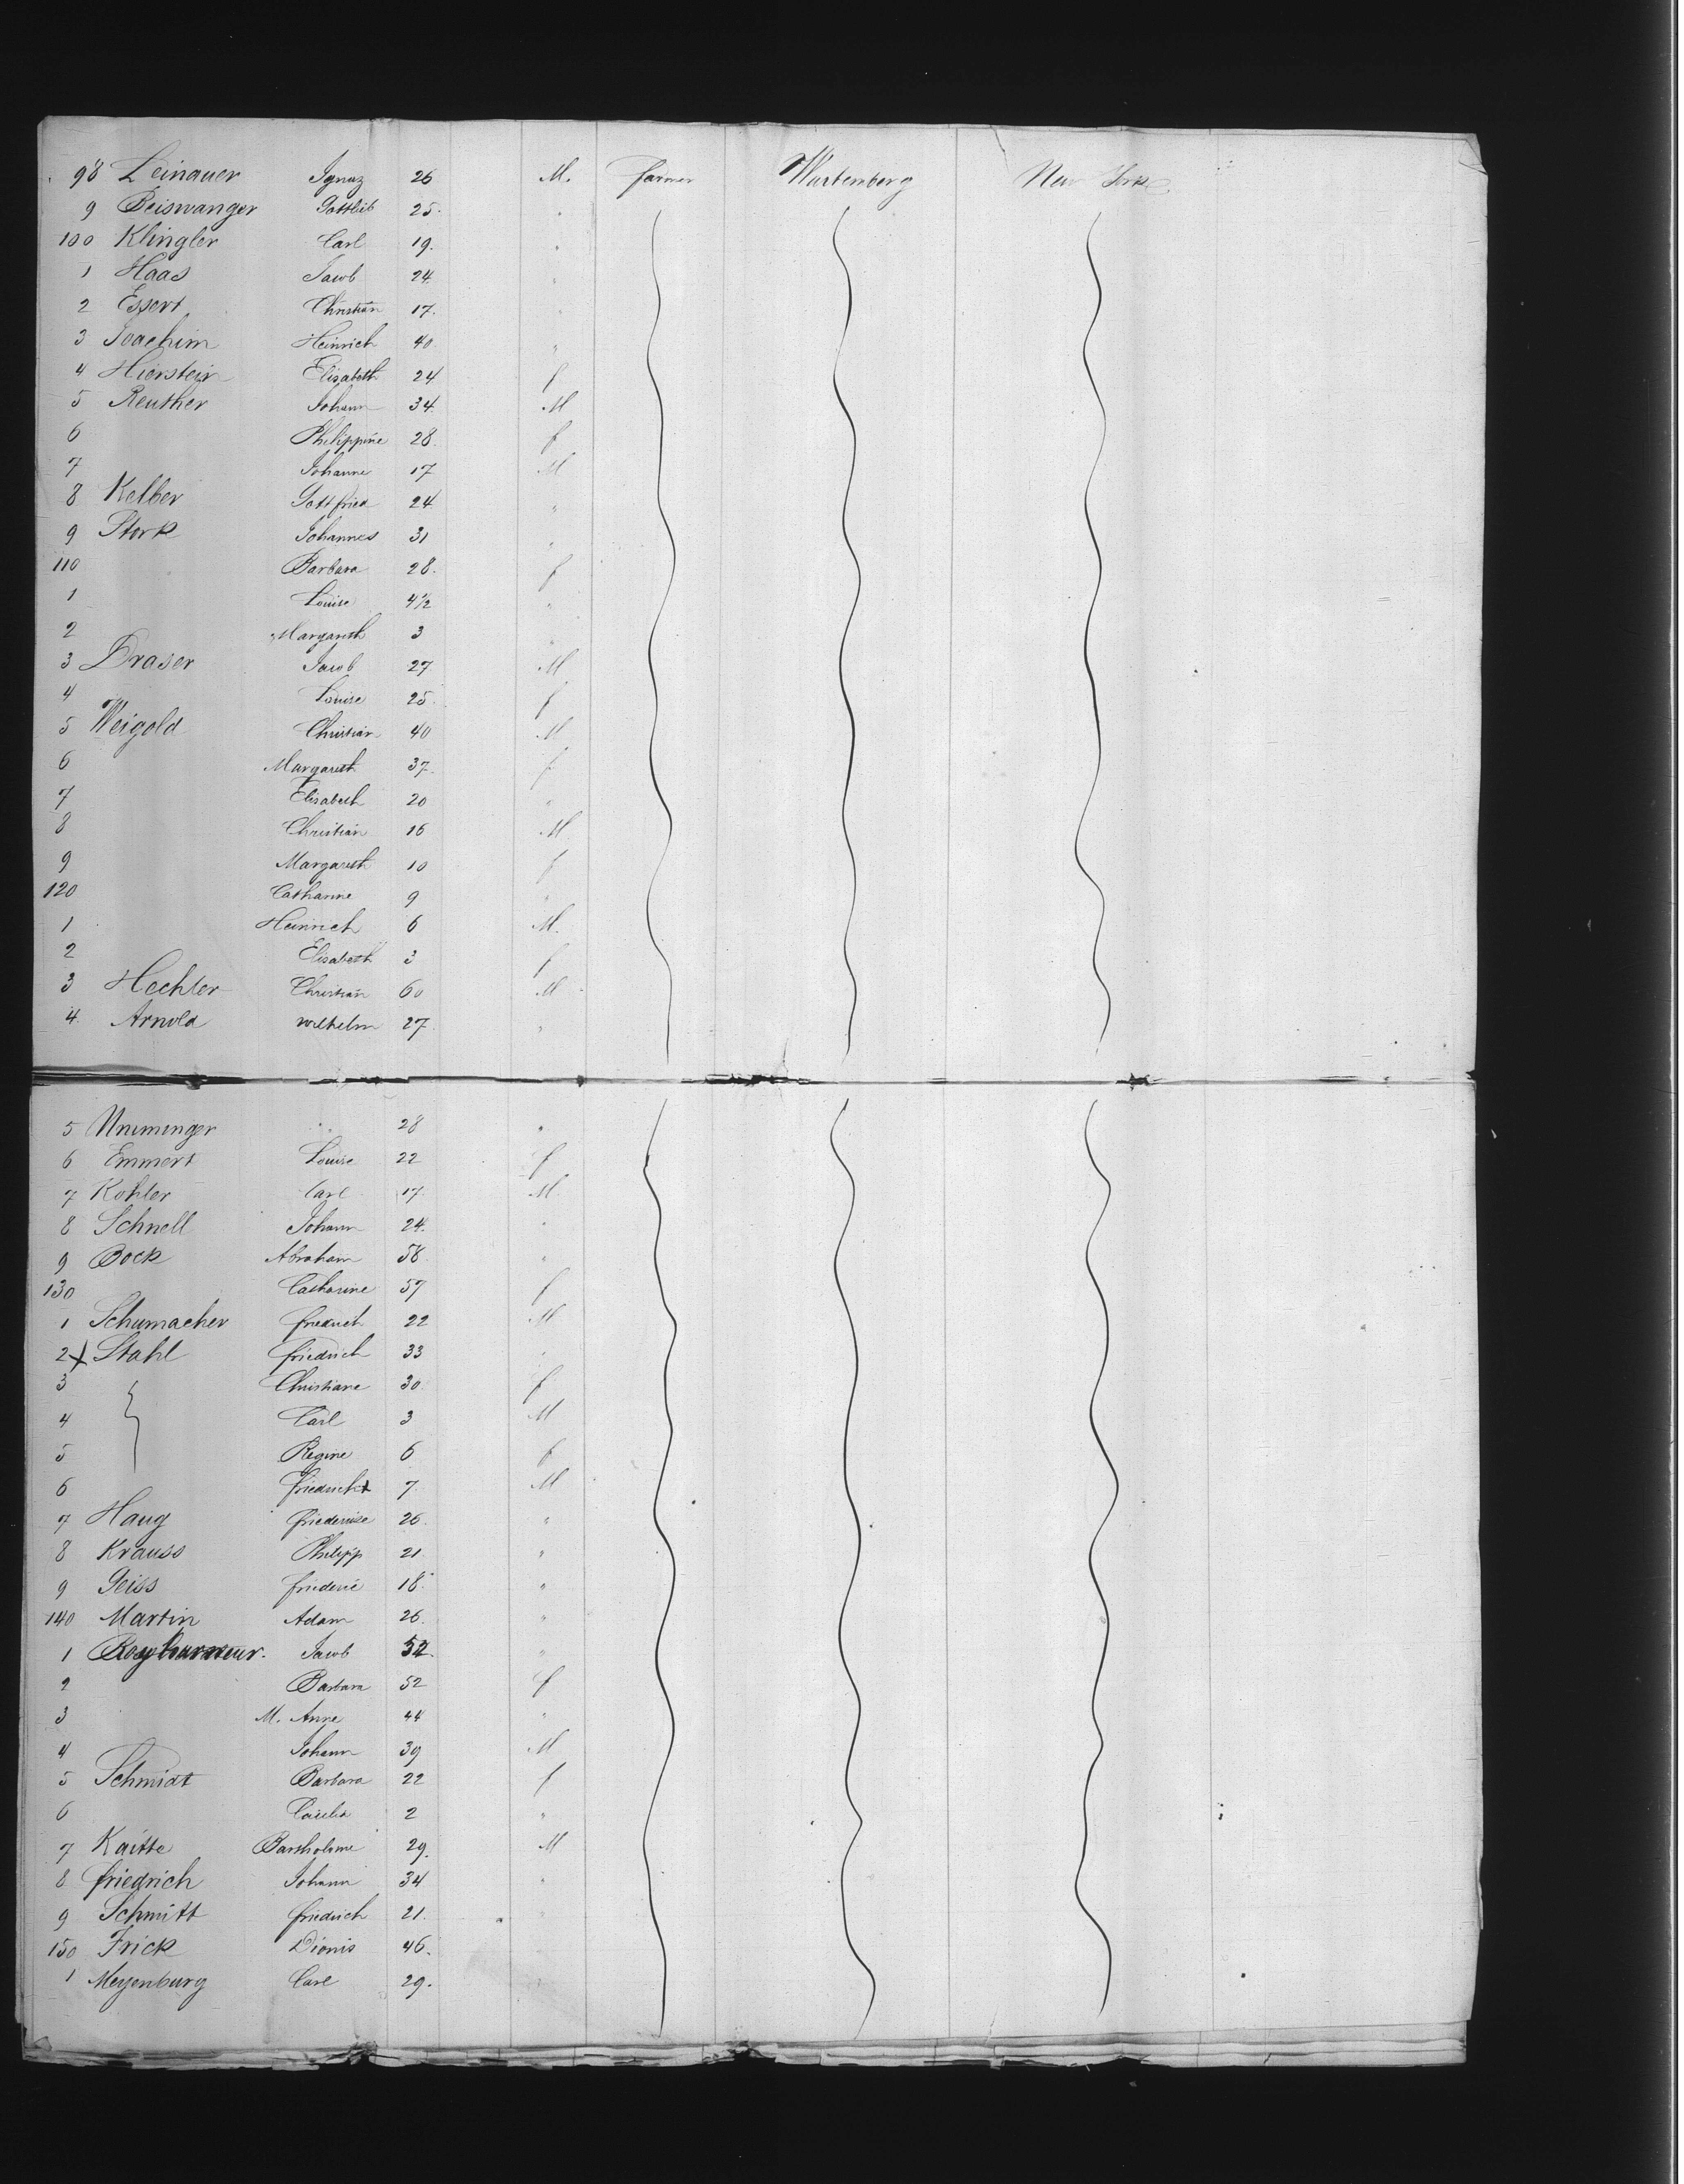 98 Leinauer Ignaz 26 M. farmer Wurtemberg New York
9 Beiswanger Gottlieb 25. "
100 Klingler Carl 19. "
1 Haas Jacob 24 "
2 Essert Christian 17. "
3 Joachim Heinrich 40 "
4 Hierstein Elisabeth 24 f
5 Reuther Johann 34 M
6 Philippine 28. f
7 Johanne 17 M
8 Kelber Gottfried 24 "
9 Stork Johannes 31 "
110 Barbara 28. f
1 Louise 4 1/2 "
2 Margareth 3 "
3 Draser Jacob 27 M
4 Louise 25 f
5 Weigold Christian 40 M
6 Margareth 37. f
7 Elisabeth 20 "
8 Christian 16 M
9 Margareth 10 f
120 Catharine 9 "
1 Heinrich 6 M.
2 Elisabeth 3 f
3 Hechler Christian 60 M
4. Arnold Wilhelm 27. "
5 28 "
6 Emmert Louise 22 f
7 Kohler Carl 17. M
8 Schnell Johann 24. "
9 Bock Abraham 58 "
130 Catharine 57 f
1 Schumacher friedrich 22 M
2 x Stahl friedrich 33 "
3 Christiane 30 f
4 Carl 3 M
5 Regine 6 f
6 friedrich x 7 M
7 Haug 26. "
8 Krauss Philipp 21 "
9 Geiss 18. "
140 Martin Adam 26. "
1 Jacob 52. "
2 Barbara 52 f
3 M. Anne 44 "
4 Johann 39 M
5 Schmidt Barbara 22 f
6 2 "
7 Kaitte Bartholome 29. M
8 friedrich Johann 34 "
9 Schmitt friedrich 21. "
150 Frick Dionis 46. "
1 Meyenburg Carl 29. "